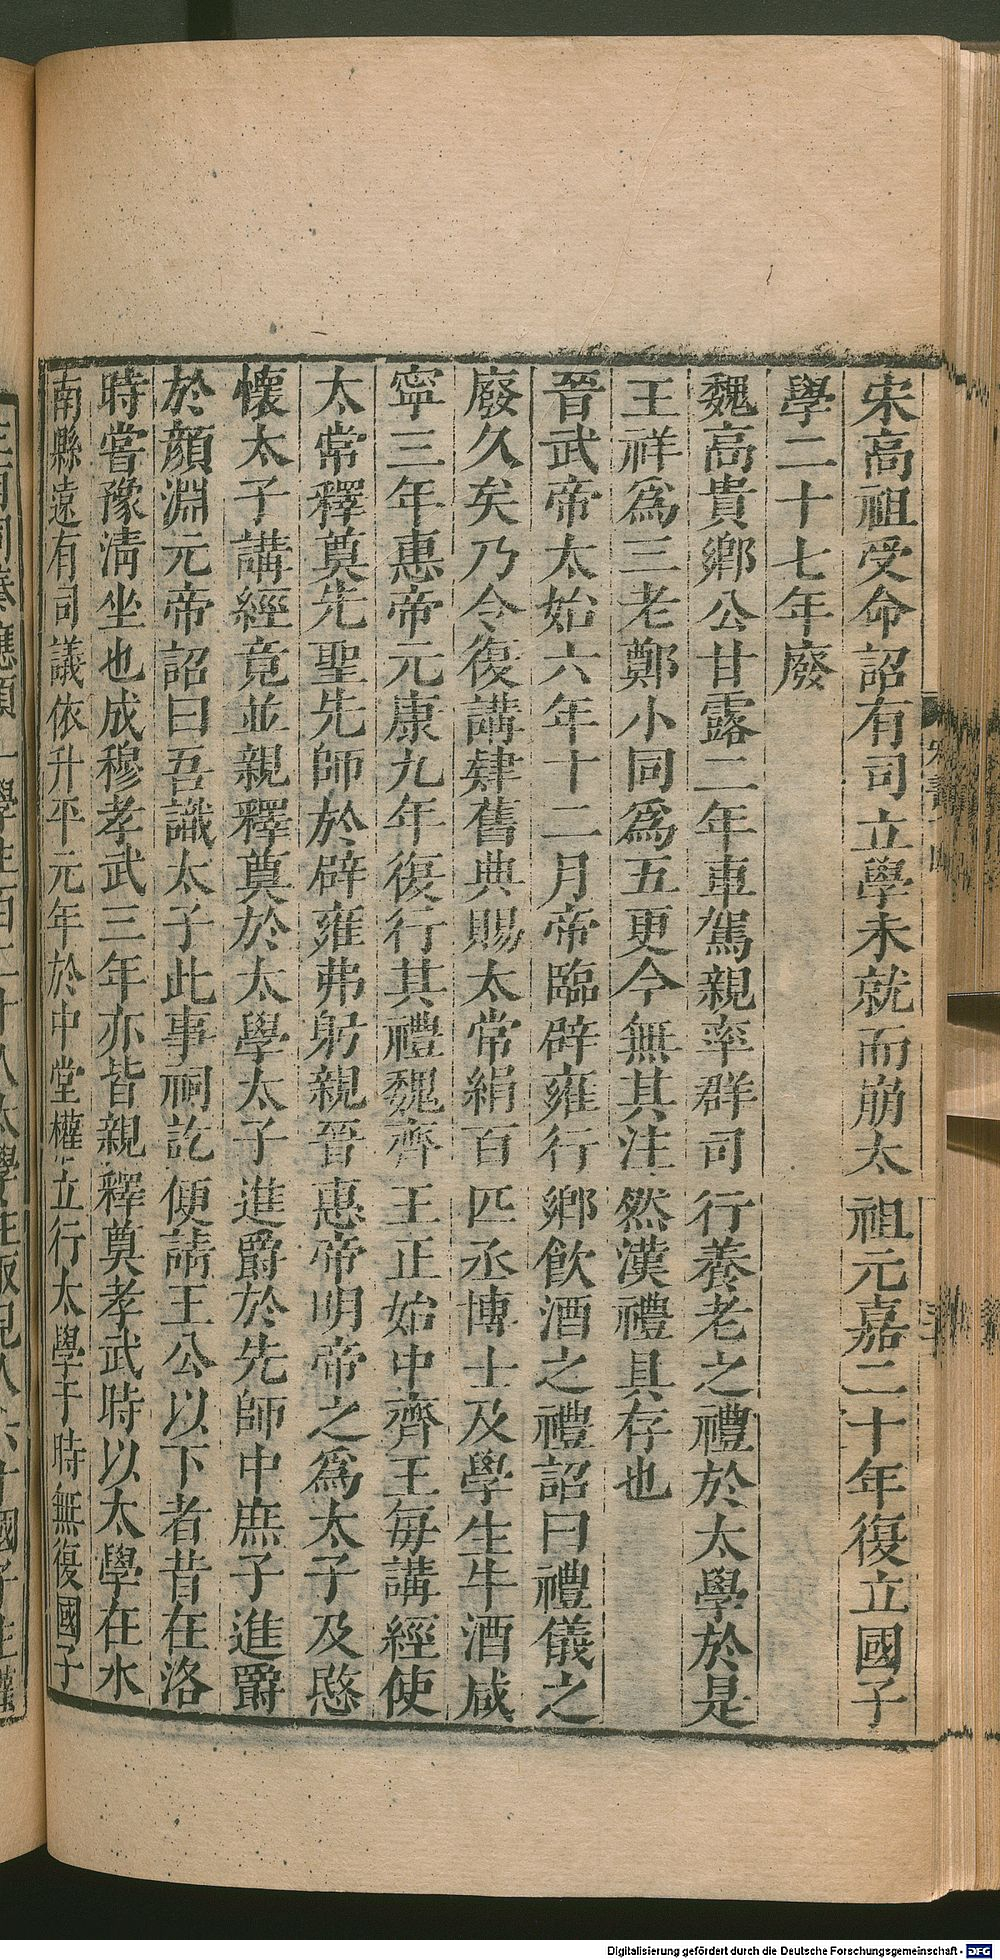 宋高祖受命詔有司立學未就而崩太祖元嘉二十年復立國子
學二十七年廢
魏高貴鄉公甘露二年車駕親率群司行養老之禮於太學於是
王祥爲三老鄭小同爲五更今無其注然漢禮具存也
晉武帝太始六年十二月帝臨辟雍行鄉飲酒之禮詔曰禮儀之
廢久矣乃今復講肄舊典賜太常絹百匹丞博士及學生牛酒咸
寧三年惠帝元康九年復行其禮魏齊王正始中齊王每講經使
太常釋奠先聖先師於辟雍弗躬親晉惠帝明帝之爲太子及愍
懷太子講經竟並親釋奠於太學太子進爵於先師中庶子進爵
於顔淵元帝詔曰吾識太子此事祠訖便請王公以下者昔在洛
時嘗豫清坐也成穆孝武三年亦皆親釋奠孝武時以太學在水
南縣遠有司議依升平元年於中堂權立行太學于時無復國子
應須二學生百二十人太學在
Digitalisierung gefördert durch die Deutsche Forschungsgemeinschaft - DFG